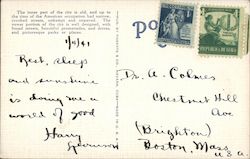 The inner part of the city is old, and up to
the time of the American occupation had narrow,
crooked streets, colonial and unpaved. The
newer portion of the city is well designed, with
broad streets, beautiful promenades, and drives,
and picturesque parks or plazas.
Pos
REPUBLICA DE CUBA
Rest, sleep
and sunshine
is doing me a
world of good
Harry
Dr. A. Colmes
Chestnut Hill
Ave
(Brighton)
Boston, Mass
U.S.A.